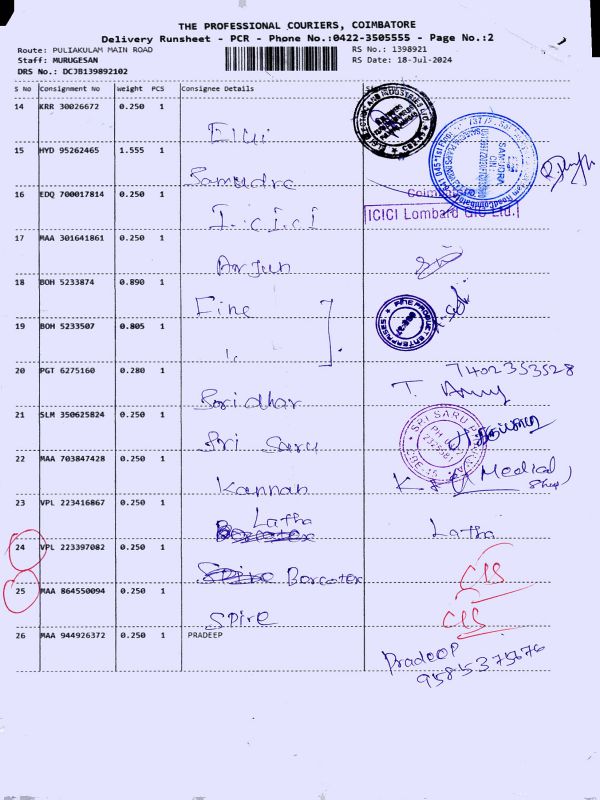 THE PROFESSIONAL COURIERS, COIMBATORE
Delivery Runsheet - PCR - Phone No.:0422-3505555 - Page No.:2
Route: PULIAKULAM MAIN ROAD RS No.: 1398921
Staff: MURUGESAN RS Date: 18-Jul-2024
DRS No.: DCJB139892102
S No Consignment No Weight PCS Consignee Details
14 KRR 30026672 0.250 1
Elgi
15 HYD 95262465 1.555 1
Samudra
16 EDQ 700017814 0.250 1
I.C.I.C.I
ICICI Lombard GIC Ltd.
17 MAA 301641861 0.250 1
Arjun
18 BOH 5233874 0.890 1
Fine
19 BOH 5233507 0.805 1
20 PGT 6275160 0.280 1
7402353528
Sridhar
21 SLM 350625824 0.250 1
Sri Saru
22 MAA 703847428 0.250 1
Kannan (Medical Shop)
23 VPL 223416867 0.250 1
Latha Latha
24 VPL 223397082 0.250 1
Borcotex CIS
25 MAA 864550094 0.250 1
Spire CIS
26 MAA 944926372 0.250 1 PRADEEP
Pradeep
9585375676